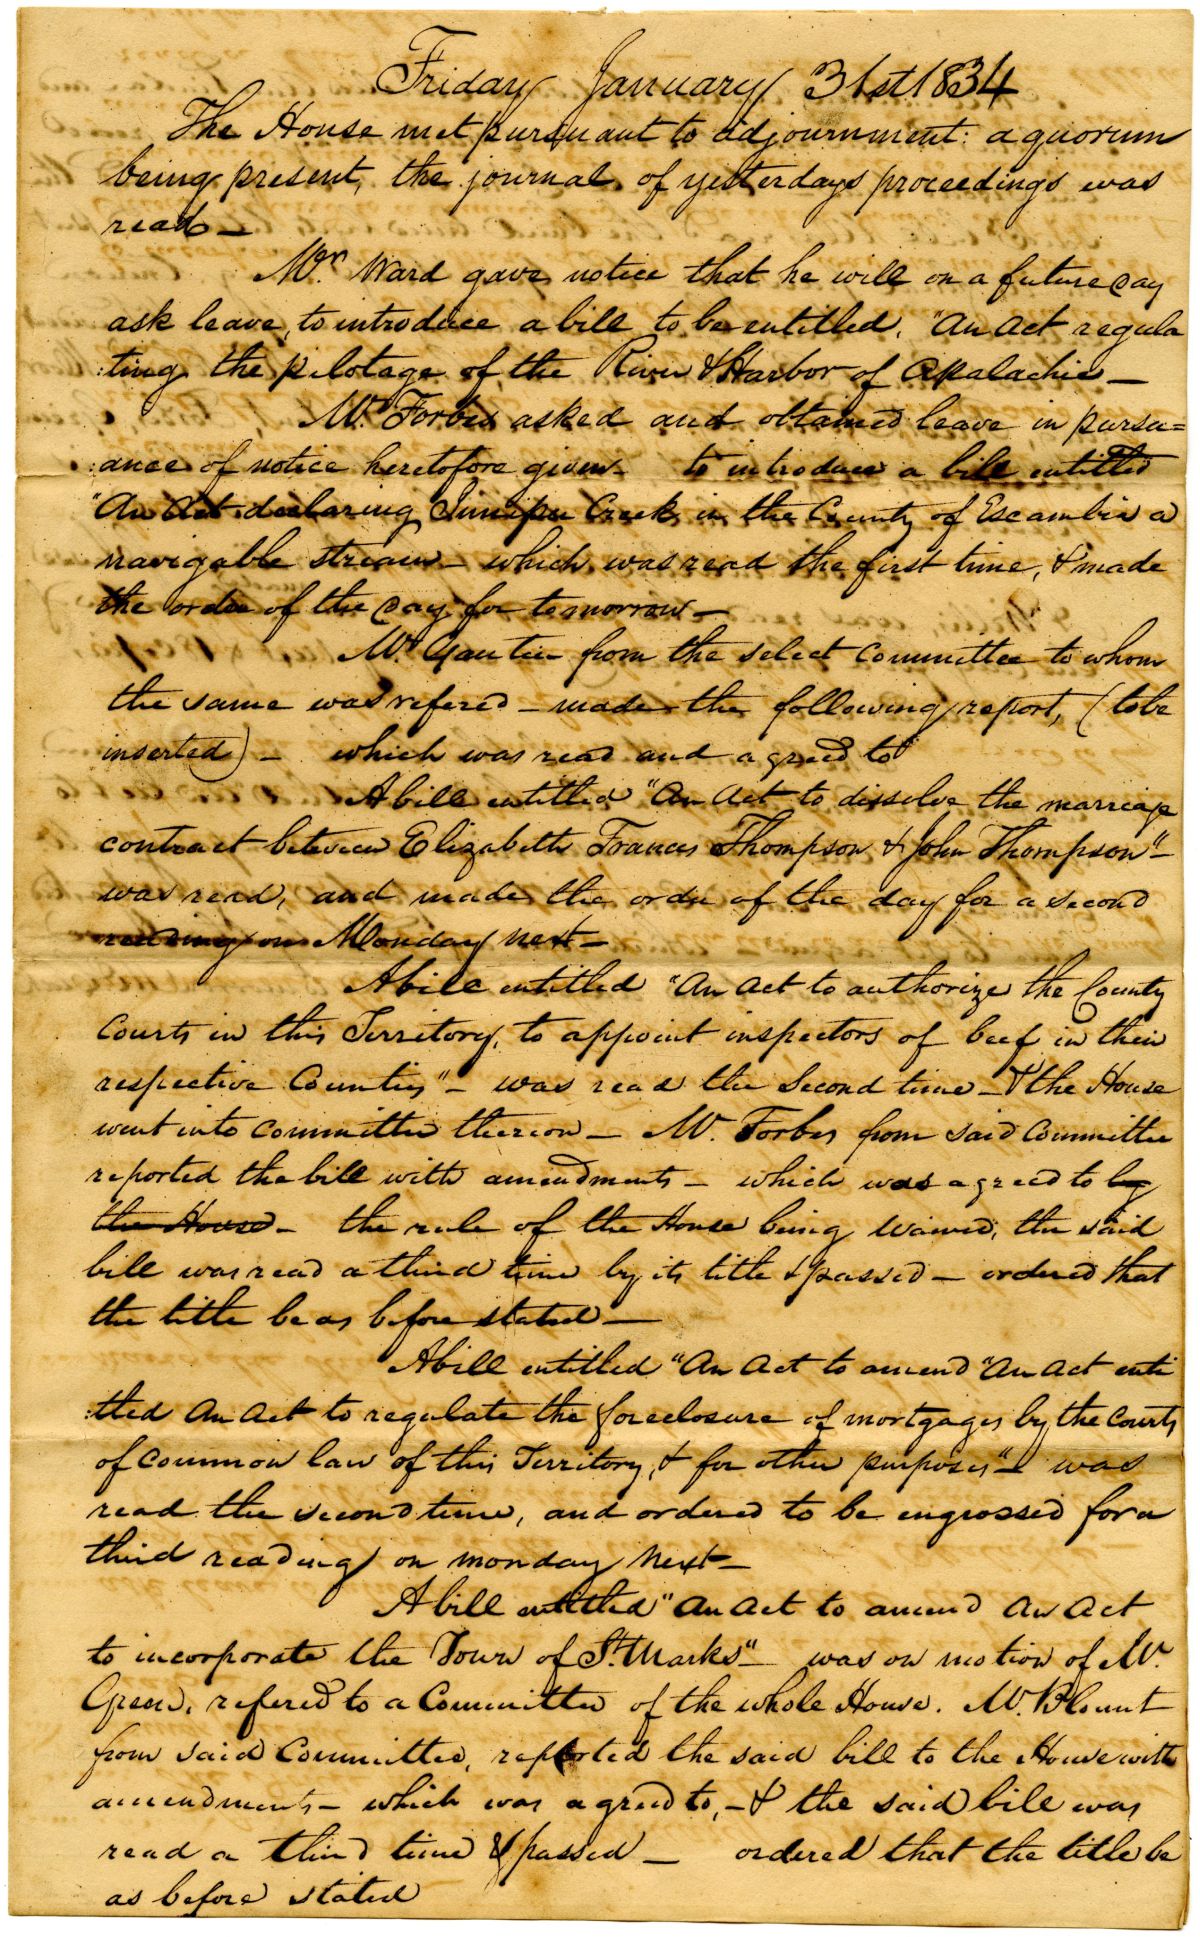 Friday January 31st 1834
The House met pursuant to adjournment: a quorum
being present, the journal of yesterdays proceedings was
read —
Mr. Ward gave notice that he will on a future day
ask leave, to introduce a bill to be entitled, "An Act regula
:ting the pilotage of the River & Harbor of Apalachic —
Mr. Forbes asked and obtained leave in pursu=
:ance of notice heretofore given — to introduce a bill entitled
"An Act declaring Juniper Creek in the County of Escambia a
navigable stream — which was read the first time, & made
the order of the day for tomorrow —
Mr. Gautier from the select committee to whom
the same was refered — made the following report, (to be
inserted) — which was read and agreed to
A bill entitled "An Act to dissolve the marriage
contract between Elizabeth Frances Thompson & John Thompson" —
was read, and made the order of the day for a second
reading on Monday next —
A bill entitled "An Act to authorize the County
Courts in this Territory, to appoint inspectors of beef in their
respective Counties" — was read the Second time — & the House
went into committee thereon — Mr. Forbes from said Committee
reported the bill with amendments — which was agreed to by
the House — the rule of the House being waived, the said
bill was read a third time by its title & passed — ordered that
the title be as before stated —
A bill entitled "An Act to amend "An Act enti
:tled An Act to regulate the foreclosure of mortgages by the Courts
of common law of this Territory, & for other purposes" — was
read the second time, and ordered to be engrossed for a
third reading on monday next —
A bill entitled "An Act to amend An Act
to incorporate the Town of St. Marks" — was on motion of Mr.
Green, refered to a Committee of the whole House. Mr. Blount
from said Committee, reported the said bill to the House with
amendments — which was agreed to, — & the said bill was
read a third time & passed — ordered that the title be
as before stated